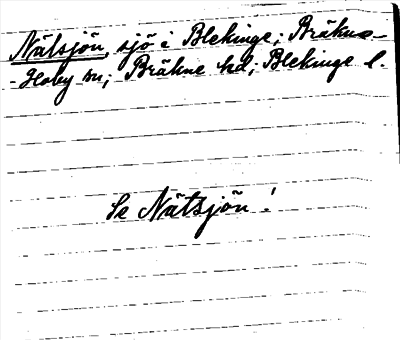 Nätsjön, sjö i Blekinge; Bräkne-
-Hoby sn; Bräkne hd; Blekinge l.
Se Nätsjön!